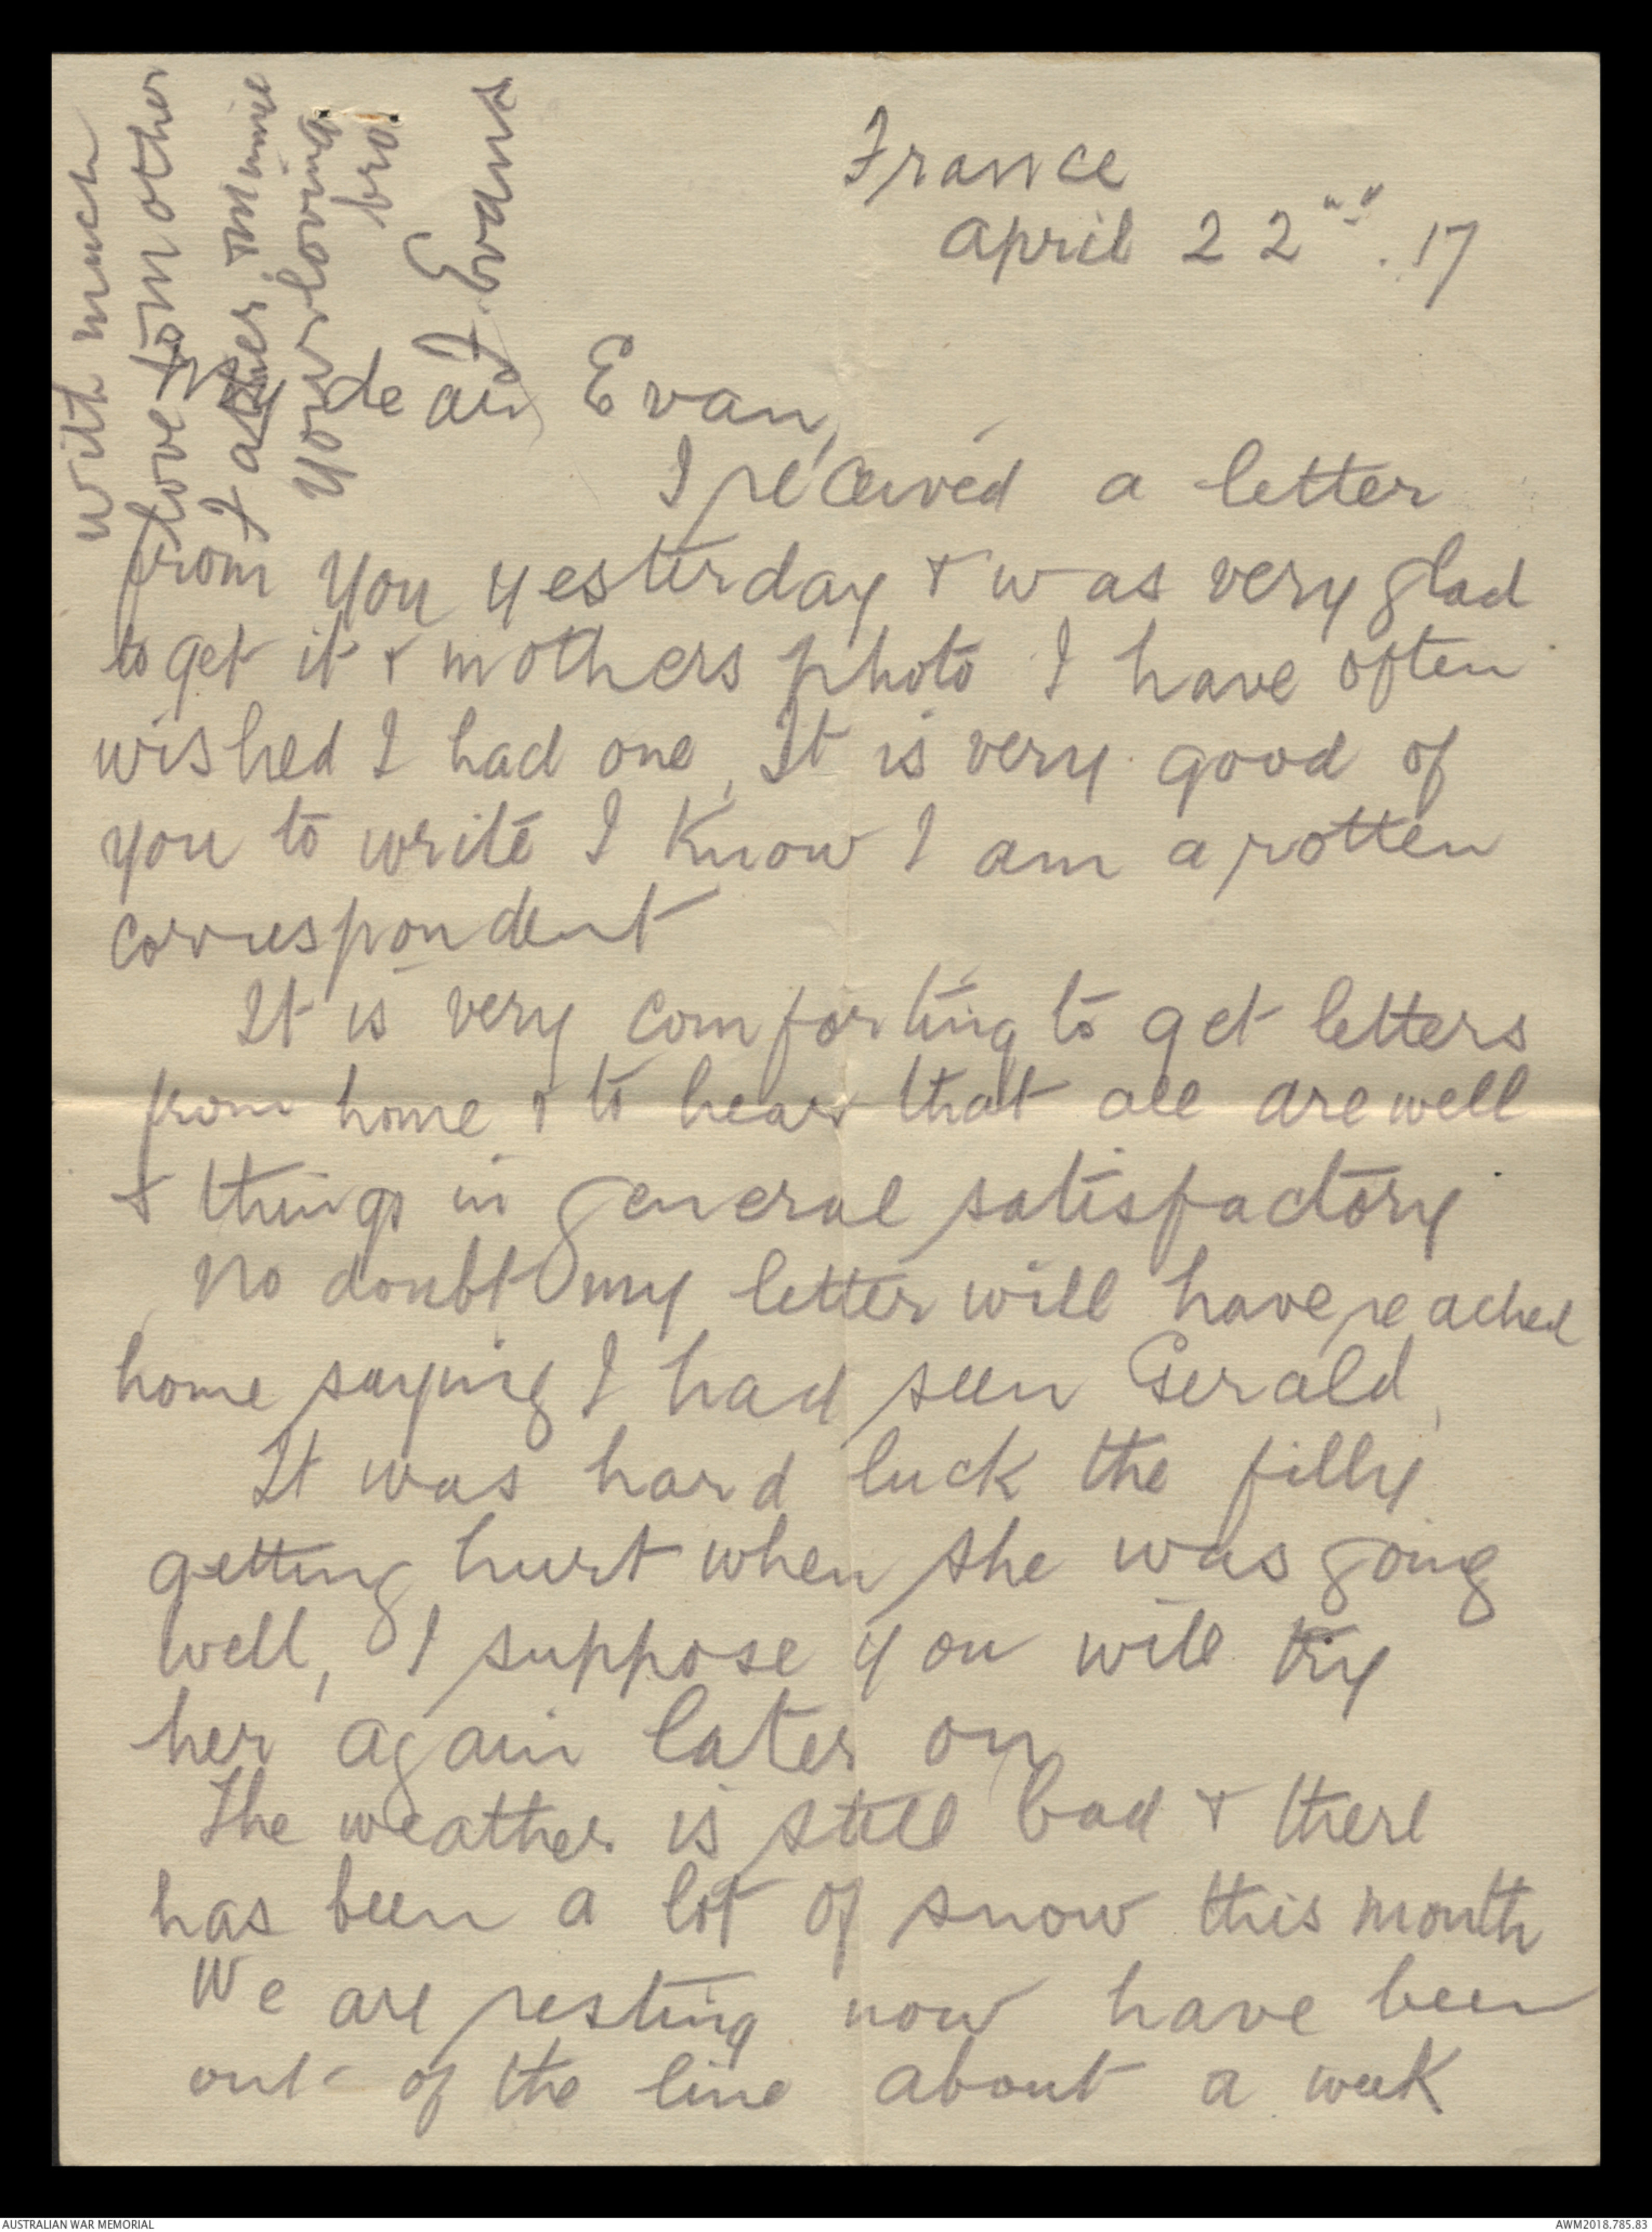 France
April 22nd. 17
My dear Evan,
I received a letter
from you yesterday & was very glad
to get it & mothers photo I have often
wished I had one, It is very good of
you to write I know I am a rotten
correspondent
It is very comforting to get letters
from home & to hear that all are well
& things in general satisfactory
No doubt my letter will have reached
home saying I had seen Gerald,
It was hard luck the filly
getting hurt when she was going
well, I suppose you will try
her again later on
The weather is still bad & there
has been a lot of snow this month
We are resting now have been
out of the line about a week
With much
love to Mother
Father & Minnie
Your loving
bro
J. Evans
AUSTRALIAN WAR MEMORIAL
AWM2018.785.83